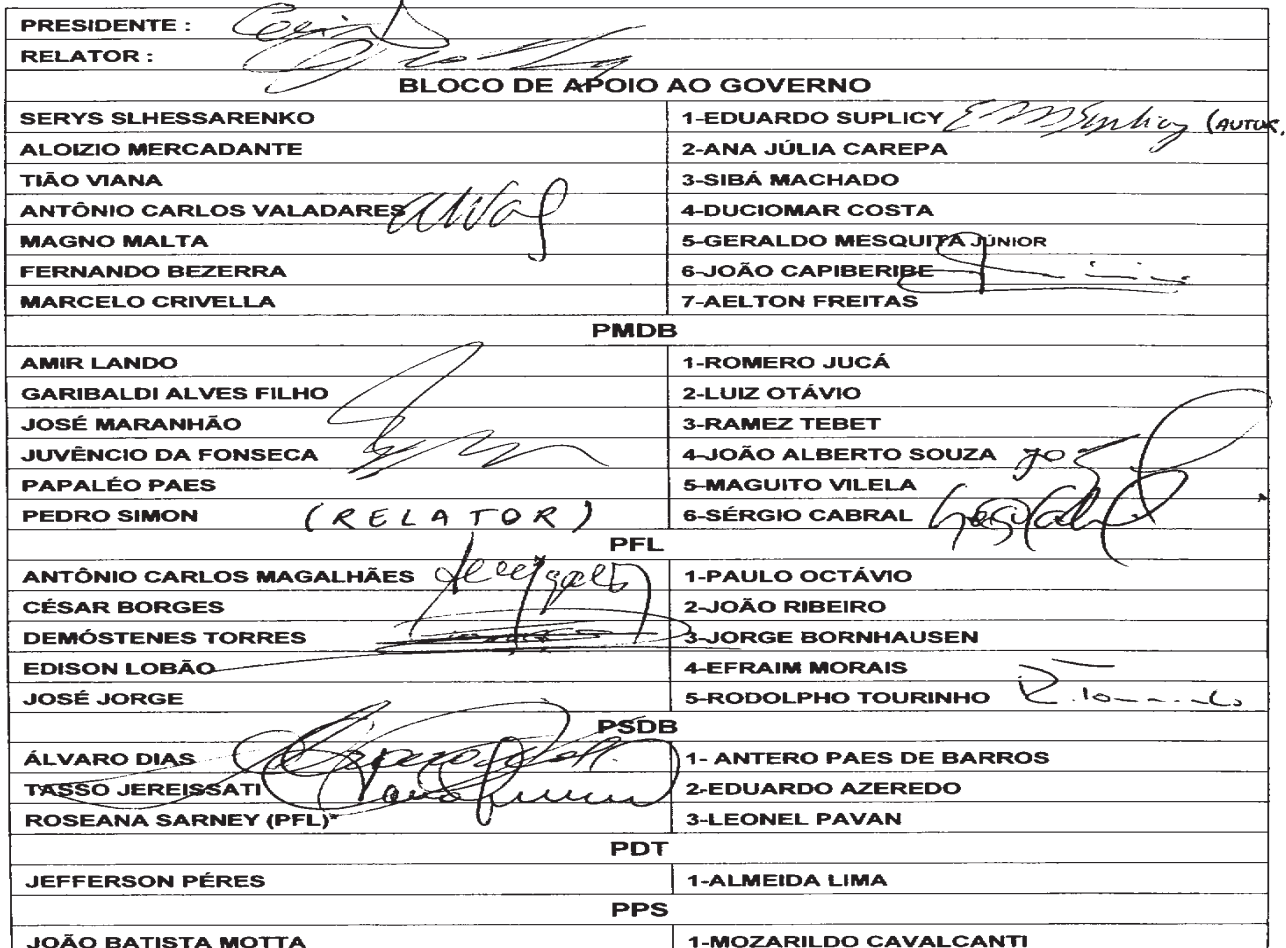 PRESIDENTE :
RELATOR :
BLOCO DE APOIO AO GOVERNO
SERYS SLHESSARENKO 1-EDUARDO SUPLICY (AUTOR,
ALOIZIO MERCADANTE 2-ANA JÚLIA CAREPA
TIÃO VIANA 3-SIBÁ MACHADO
ANTÔNIO CARLOS VALADARES 4-DUCIOMAR COSTA
MAGNO MALTA 5-GERALDO MESQUITA JÚNIOR
FERNANDO BEZERRA 6-JOÃO CAPIBERIBE
MARCELO CRIVELLA 7-AELTON FREITAS
PMDB
AMIR LANDO 1-ROMERO JUCÁ
GARIBALDI ALVES FILHO 2-LUIZ OTÁVIO
JOSÉ MARANHÃO 3-RAMEZ TEBET
JUVÊNCIO DA FONSECA 4-JOÃO ALBERTO SOUZA
PAPALÉO PAES 5-MAGUITO VILELA
PEDRO SIMON (RELATOR) 6-SÉRGIO CABRAL
PFL
ANTÔNIO CARLOS MAGALHÃES 1-PAULO OCTÁVIO
CÉSAR BORGES 2-JOÃO RIBEIRO
DEMÓSTENES TORRES 3-JORGE BORNHAUSEN
EDISON LOBÃO 4-EFRAIM MORAIS
JOSÉ JORGE 5-RODOLPHO TOURINHO
PSDB
ÁLVARO DIAS 1- ANTERO PAES DE BARROS
TASSO JEREISSATI 2-EDUARDO AZEREDO
ROSEANA SARNEY (PFL)* 3-LEONEL PAVAN
PDT
JEFFERSON PÉRES 1-ALMEIDA LIMA
PPS
JOÃO BATISTA MOTTA 1-MOZARILDO CAVALCANTI